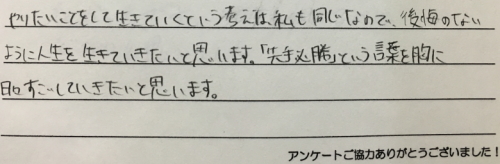 やりたいことをして生きていくという考えは、私も同じなので、後悔のない
ように人生を生きていきたいと思います。「先手必勝」という言葉を胸に
日々すごしていきたいと思います。
アンケートご協力ありがとうございました！